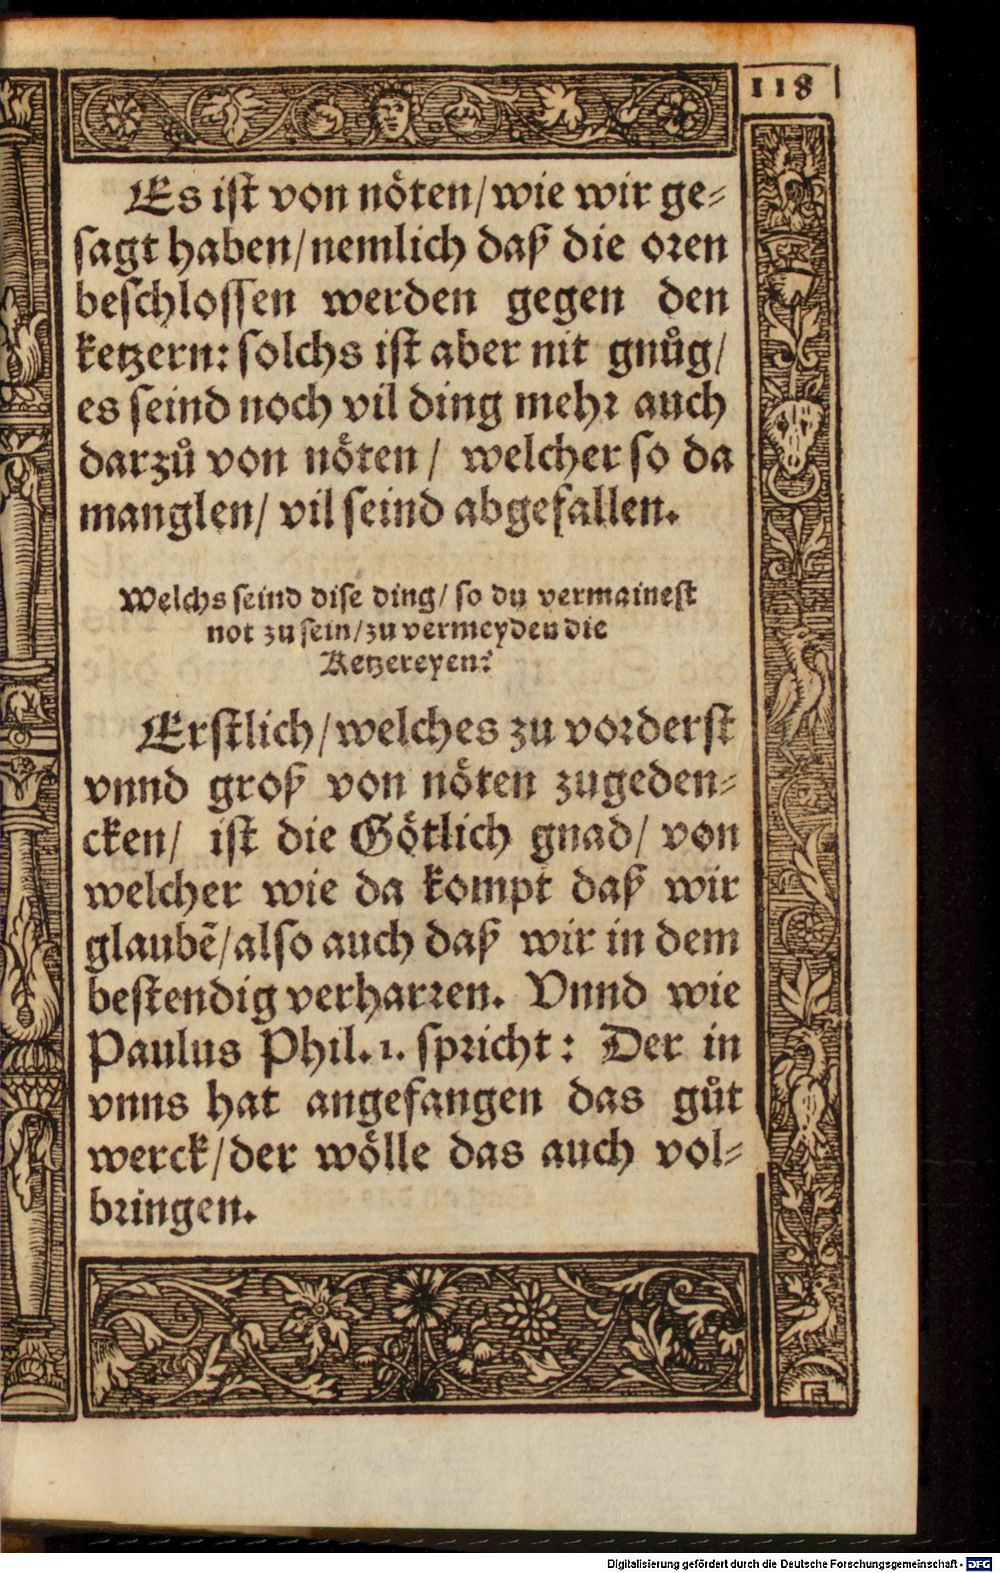 118
Es ist von nöten/ wie wir ge-
sagt haben/ nemlich daß die oren
beschlossen werden gegen den
ketzern: solchs ist aber nit gnůg/
es seind noch vil ding mehr auch
darzů von nöten/ welcher so da
manglen/ vil seind abgefallen.
Welchs seind dise ding/ so du vermainest
not zu sein/ zu vermeyden die
Ketzereyen?
Erstlich/ welches zu vorderst
vnnd groß von nöten zugeden-
cken/ ist die Götlich gnad/ von
welcher wie da kompt daß wir
glaubẽ/ also auch daß wir in dem
bestendig verharren. Vnnd wie
Paulus Phil. 1. spricht: Der in
vnns hat angefangen das gůt
werck/ der wölle das auch vol-
bringen.
Digitalisierung gefördert durch die Deutsche Forschungsgemeinschaft - DFG